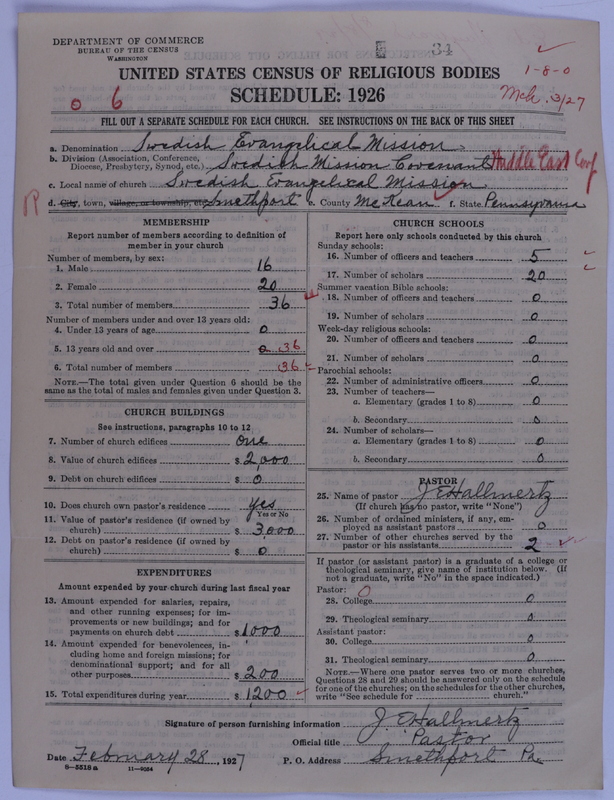 DEPARTMENT OF COMMERCE
BUREAU OF THE CENSUS
WASHINGTON
34
UNITED STATES CENSUS OF RELIGIOUS BODIES
1-8-0
SCHEDULE: 1926
Mch. 3/27
0 6
FILL OUT A SEPARATE SCHEDULE FOR EACH CHURCH. SEE INSTRUCTIONS ON THE BACK OF THIS SHEET
a. Denomination Swedish Evangelical Mission
b. Division (Association, Conference, Diocese, Presbytery, Synod, etc.) Swedish Mission Covenant Middle East Conf
c. Local name of church Swedish Evangelical Mission
d. City, town, village, or township, etc. Smethport e. County McKean f. State Pennsylvania
MEMBERSHIP
Report number of members according to definition of
member in your church
Number of members, by sex:
1. Male 16
2. Female 20
3. Total number of members 36
Number of members under and over 13 years old:
4. Under 13 years of age 0
5. 13 years old and over 0 36
6. Total number of members 36
NOTE.—The total given under Question 6 should be the
same as the total of males and females given under Question 3.
CHURCH BUILDINGS
See instructions, paragraphs 10 to 12
7. Number of church edifices One
8. Value of church edifices $ 2,000
9. Debt on church edifices $ 0
10. Does church own pastor's residence yes
Yes or No
11. Value of pastor's residence (if owned by
church) $ 3,000
12. Debt on pastor's residence (if owned by
church) $ 0
EXPENDITURES
Amount expended by your church during last fiscal year
13. Amount expended for salaries, repairs,
and other running expenses; for im-
provements or new buildings; and for
payments on church debt $ 1000
14. Amount expended for benevolences, in-
cluding home and foreign missions; for
denominational support; and for all
other purposes $ 200
15. Total expenditures during year $ 1200
CHURCH SCHOOLS
Report here only schools conducted by this church
Sunday schools:
16. Number of officers and teachers 5
17. Number of scholars 20
Summer vacation Bible schools:
18. Number of officers and teachers 0
19. Number of scholars 0
Week-day religious schools:
20. Number of officers and teachers 0
21. Number of scholars 0
Parochial schools:
22. Number of administrative officers 0
23. Number of teachers—
a. Elementary (grades 1 to 8) 0
b. Secondary 0
24. Number of scholars—
a. Elementary (grades 1 to 8) 0
b. Secondary 0
PASTOR
25. Name of pastor J E Hallmertz
(If church has no pastor, write "None")
26. Number of ordained ministers, if any, em-
ployed as assistant pastors 0
27. Number of other churches served by the
pastor or his assistants 2
If pastor (or assistant pastor) is a graduate of a college or
theological seminary, give name of institution below. (If
not a graduate, write "No" in the space indicated.)
Pastor: 0
28. College 0
29. Theological seminary 0
Assistant pastor:
30. College 0
31. Theological seminary 0
NOTE.—Where one pastor serves two or more churches,
Questions 28 and 29 should be answered only on the schedule
for one of the churches; on the schedules for the other churches,
write "See schedule for church."
Signature of person furnishing information J. E Hallmertz
Official title Pastor
Date February 28, 1927 P. O. Address Smethport Pa.
8—5518 a 11—9064